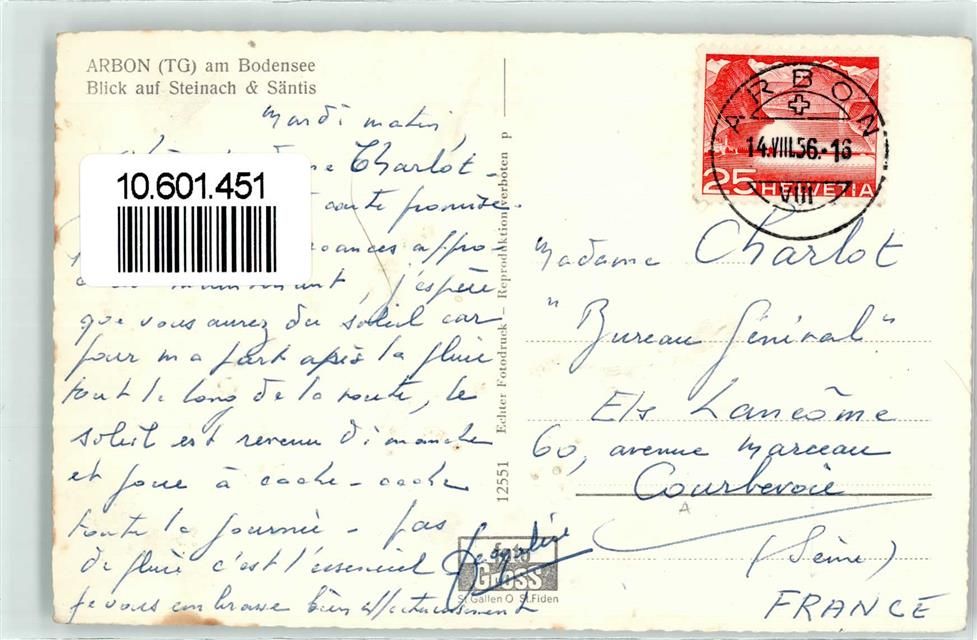 ARBON (TG) am Bodensee
Blick auf Steinach & Säntis
Mardi matin
Charlot -
10.601.451
carte promise.
vacances appro-
j'espère
que vous aurez du soleil car
pour ma part après la pluie
tout le long de la route, le
soleil est revenu Dimanche
et joue à cache-cache
toute la journée - pas
de pluie c'est l'essentiel
je vous embrasse bien affectueusement
12551 Echter Fotodruck - Reproduktion verboten p
foto
GROSS
St. Gallen O St. Fiden
ARBON
14.VIII.56.-16
VIII
25 HELVETIA
Madame Charlot
"Bureau Général"
Ets Lancôme
60, avenue Marceau
Courbevoie
A
(Seine)
FRANCE